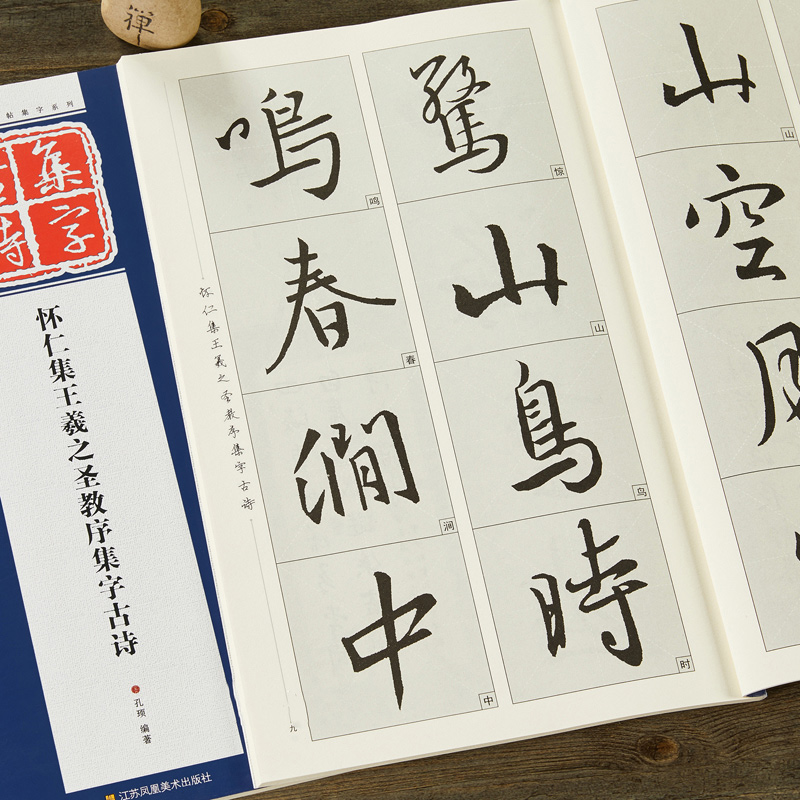 禅
帖集字系列
集字
诗
怀仁集王羲之圣教序集字古诗
孔顼 编著
江苏凤凰美术出版社
怀仁集王羲之圣教序集字古诗
九
驚 惊
山 山
鳥 鸟
時 时
鳴 鸣
春 春
澗 涧
中 中
山 山
空